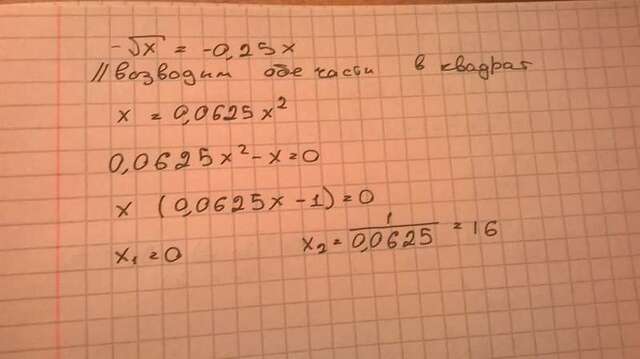 -√x = -0,25x
// возводим обе части в квадрат
x = 0,0625x²
0,0625x² - x = 0
x (0,0625x - 1) = 0
x₁ = 0 x₂ = 1/0,0625 = 16